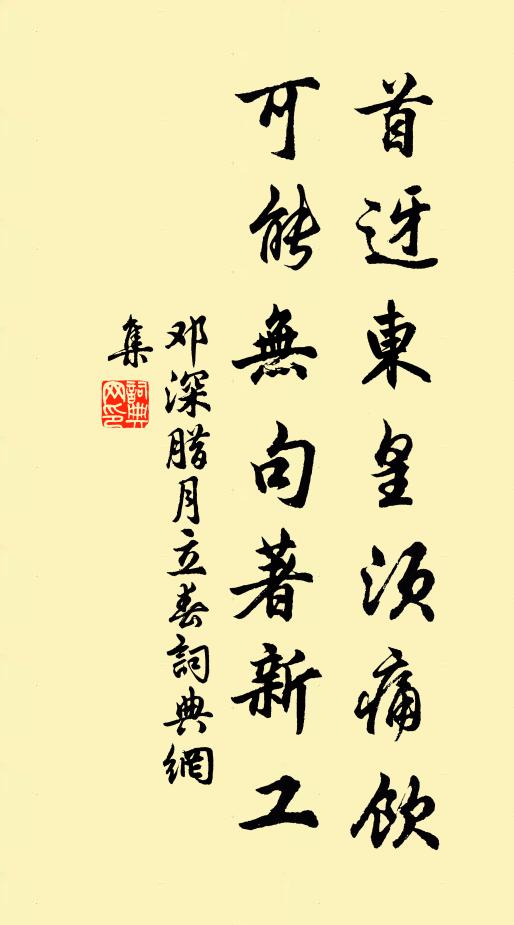 首迓東皇須痛飲
可能無句著新工
邓深腊月立春詞典網
集
詞典
网印